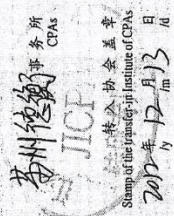 苏州德衡 事务所
CPAs
JICP
转入协会盖章
Stamp of the transfer-in Institute of CPAs
2012年 12月 13日
/y /m /d